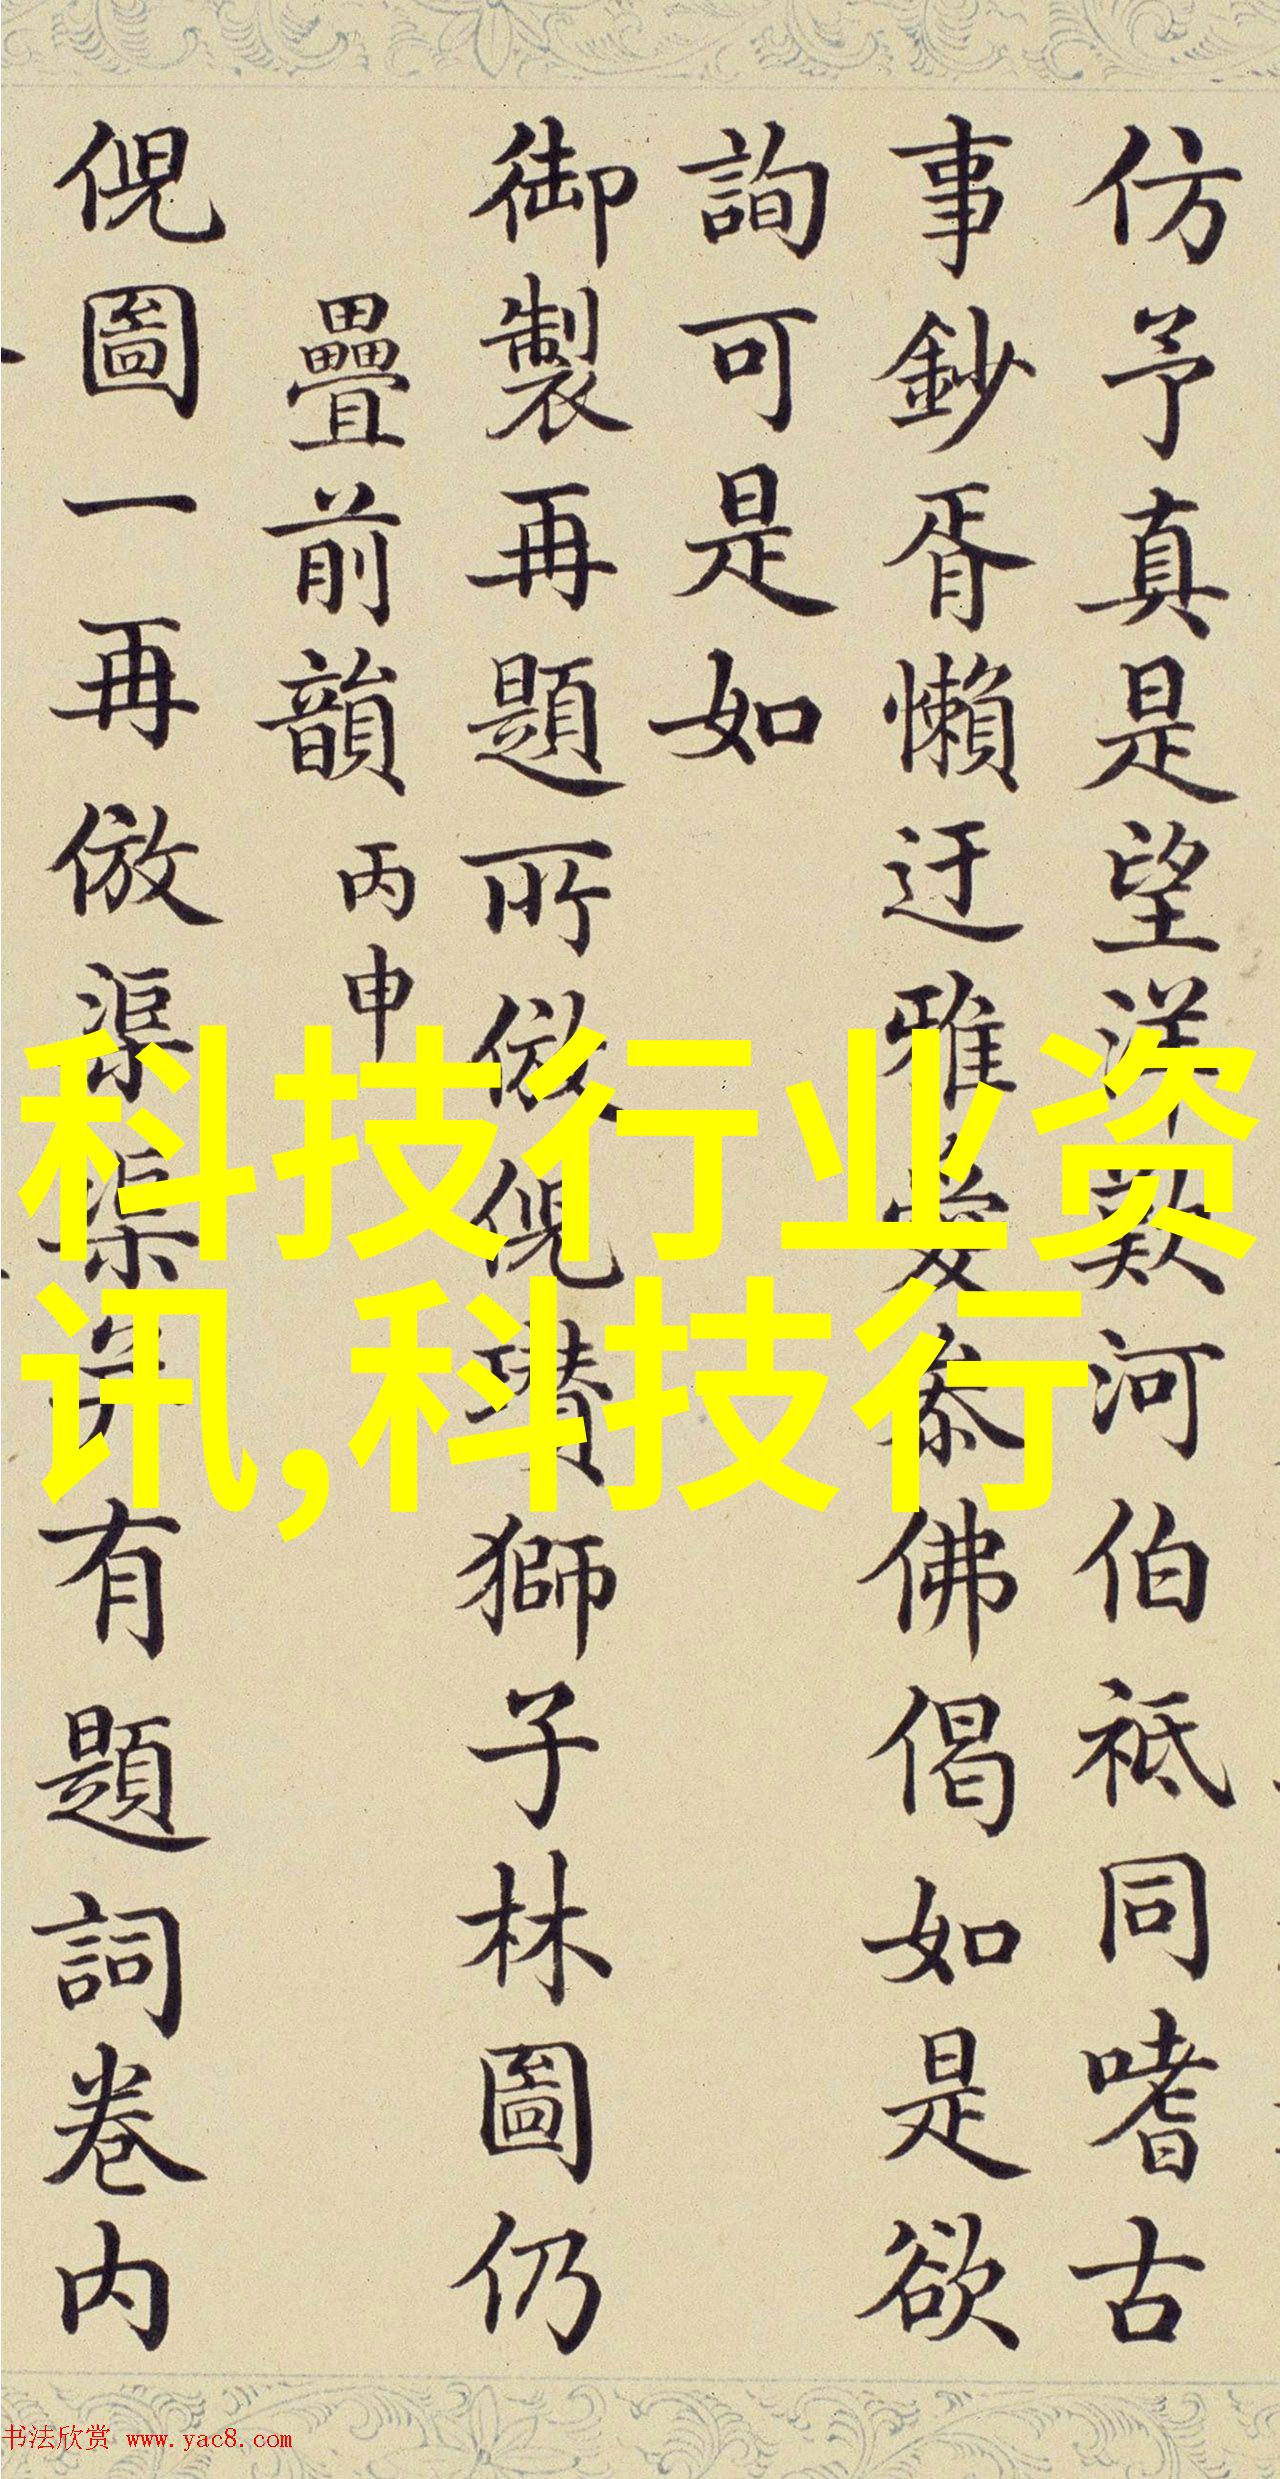 仿予真是望洋歎河伯祗同嗜古
事鈔胥懶迂雅愛叅佛偈如是欲
詢可是如
御製再題所倣倪瓚獅子林圖仍
疊前韻 丙申
倪圖一再倣渠渠弆有題詞卷内
科技行业资
讯,科技行
书法欣赏 www.yac8.com